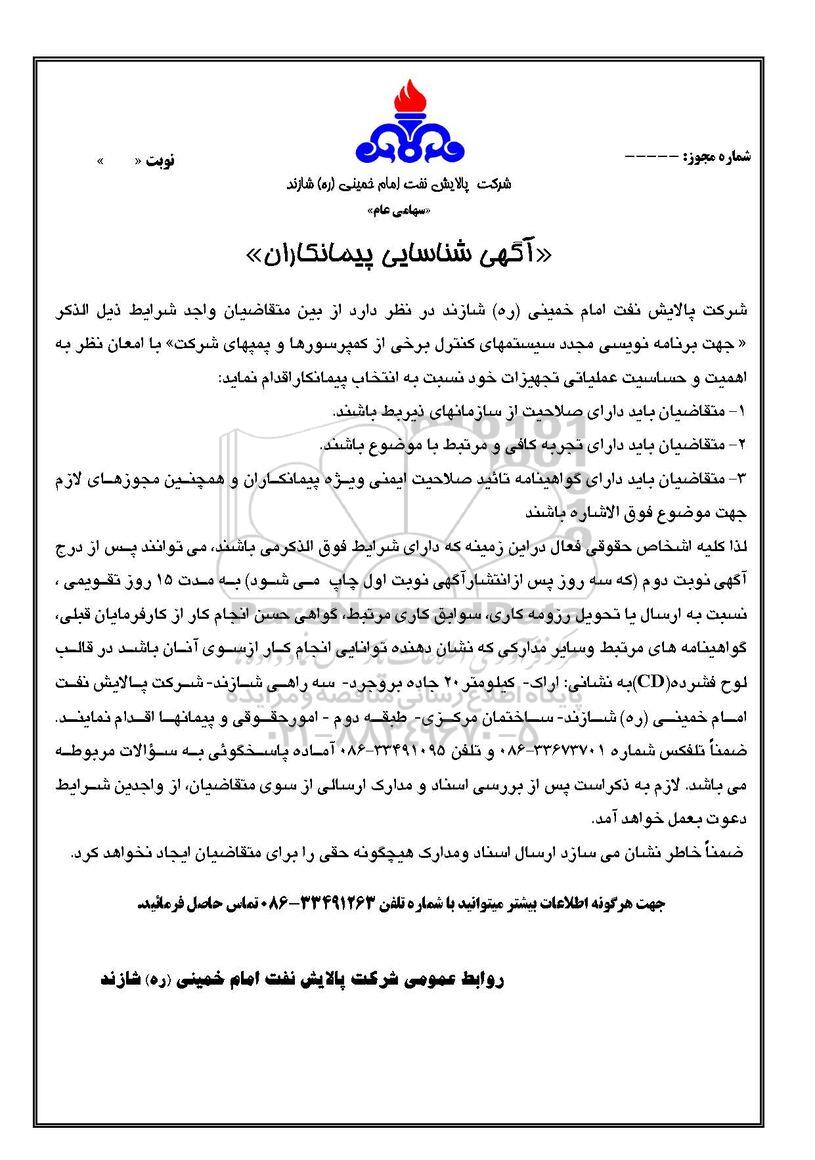 شماره مجوز: -----
نوبت «      »
شرکت پالایش نفت امام خمینی (ره) شازند
«سهامی عام»
«آگهی شناسایی پیمانکاران»
شرکت پالایش نفت امام خمینی (ره) شازند در نظر دارد از بین متقاضیان واجد شرایط ذیل الذکر
« جهت برنامه نویسی مجدد سیستمهای کنترل برخی از کمپرسورها و پمپهای شرکت» با امعان نظر به
اهمیت و حساسیت عملیاتی تجهیزات خود نسبت به انتخاب پیمانکاراقدام نماید:
۱- متقاضیان باید دارای صلاحیت از سازمانهای ذیربط باشند.
۲- متقاضیان باید دارای تجربه کافی و مرتبط با موضوع باشند.
۳- متقاضیان باید دارای گواهینامه تائید صلاحیت ایمنی ویـژه پیمانکـاران و همچنـین مجوزهـای لازم
جهت موضوع فوق الاشاره باشند
لذا کلیه اشخاص حقوقی فعال دراین زمینه که دارای شرایط فوق الذکرمی باشند، می توانند پـس از درج
آگهی نوبت دوم (که سه روز پس ازانتشارآگهی نوبت اول چاپ مـی شـود) بـه مـدت ۱۵ روز تقـویمی ،
نسبت به ارسال یا تحویل رزومه کاری، سوابق کاری مرتبط، گواهی حسن انجام کار از کارفرمایان قبلی،
گواهینامه های مرتبط وسایر مدارکی که نشان دهنده توانایی انجام کـار ازسـوی آنـان باشـد در قالـب
لوح فشرده(CD)به نشانی: اراک- کیلومتر۲۰ جاده بروجرد- سه راهـی شـازند- شـرکت پـالایش نفـت
امـام خمینـی (ره) شـازند- سـاختمان مرکـزی- طبقـه دوم - امورحقـوقی و پیمانهـا اقـدام نماینـد.
ضمناً تلفکس شماره ۳۳۶۷۳۷۰۱-۰۸۶ و تلفن ۳۳۴۹۱۰۹۵-۰۸۶ آمـاده پاسـخگوئی بـه سـؤالات مربوطـه
می باشد. لازم به ذکراست پس از بررسی اسناد و مدارک ارسالی از سوی متقاضیان، از واجدین شـرایط
دعوت بعمل خواهد آمد.
ضمناً خاطر نشان می سازد ارسال اسناد ومدارک هیچگونه حقی را برای متقاضیان ایجاد نخواهد کرد.
جهت هرگونه اطلاعات بیشتر میتوانید با شماره تلفن ۳۳۴۹۱۲۶۳-۰۸۶ تماس حاصل فرمائید.
روابط عمومی شرکت پالایش نفت امام خمینی (ره) شازند
ParsNamadData
پایگاه اطلاع رسانی مناقصه و مزایده
۰۲۱-۸۸۳۴۹۶۷۰-۵